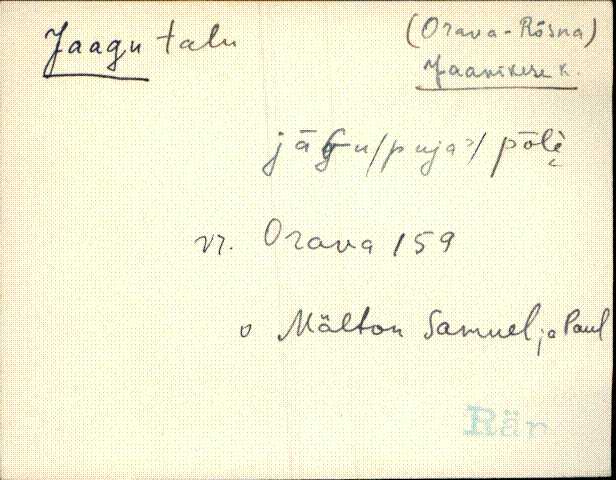 Jaagu talu
(Orava-Rõsna)
Jaanikese k.
jāGu/pujaˀ/ põlè
vr. Orava 159
o Mälton Samuel ja Paul
Räp